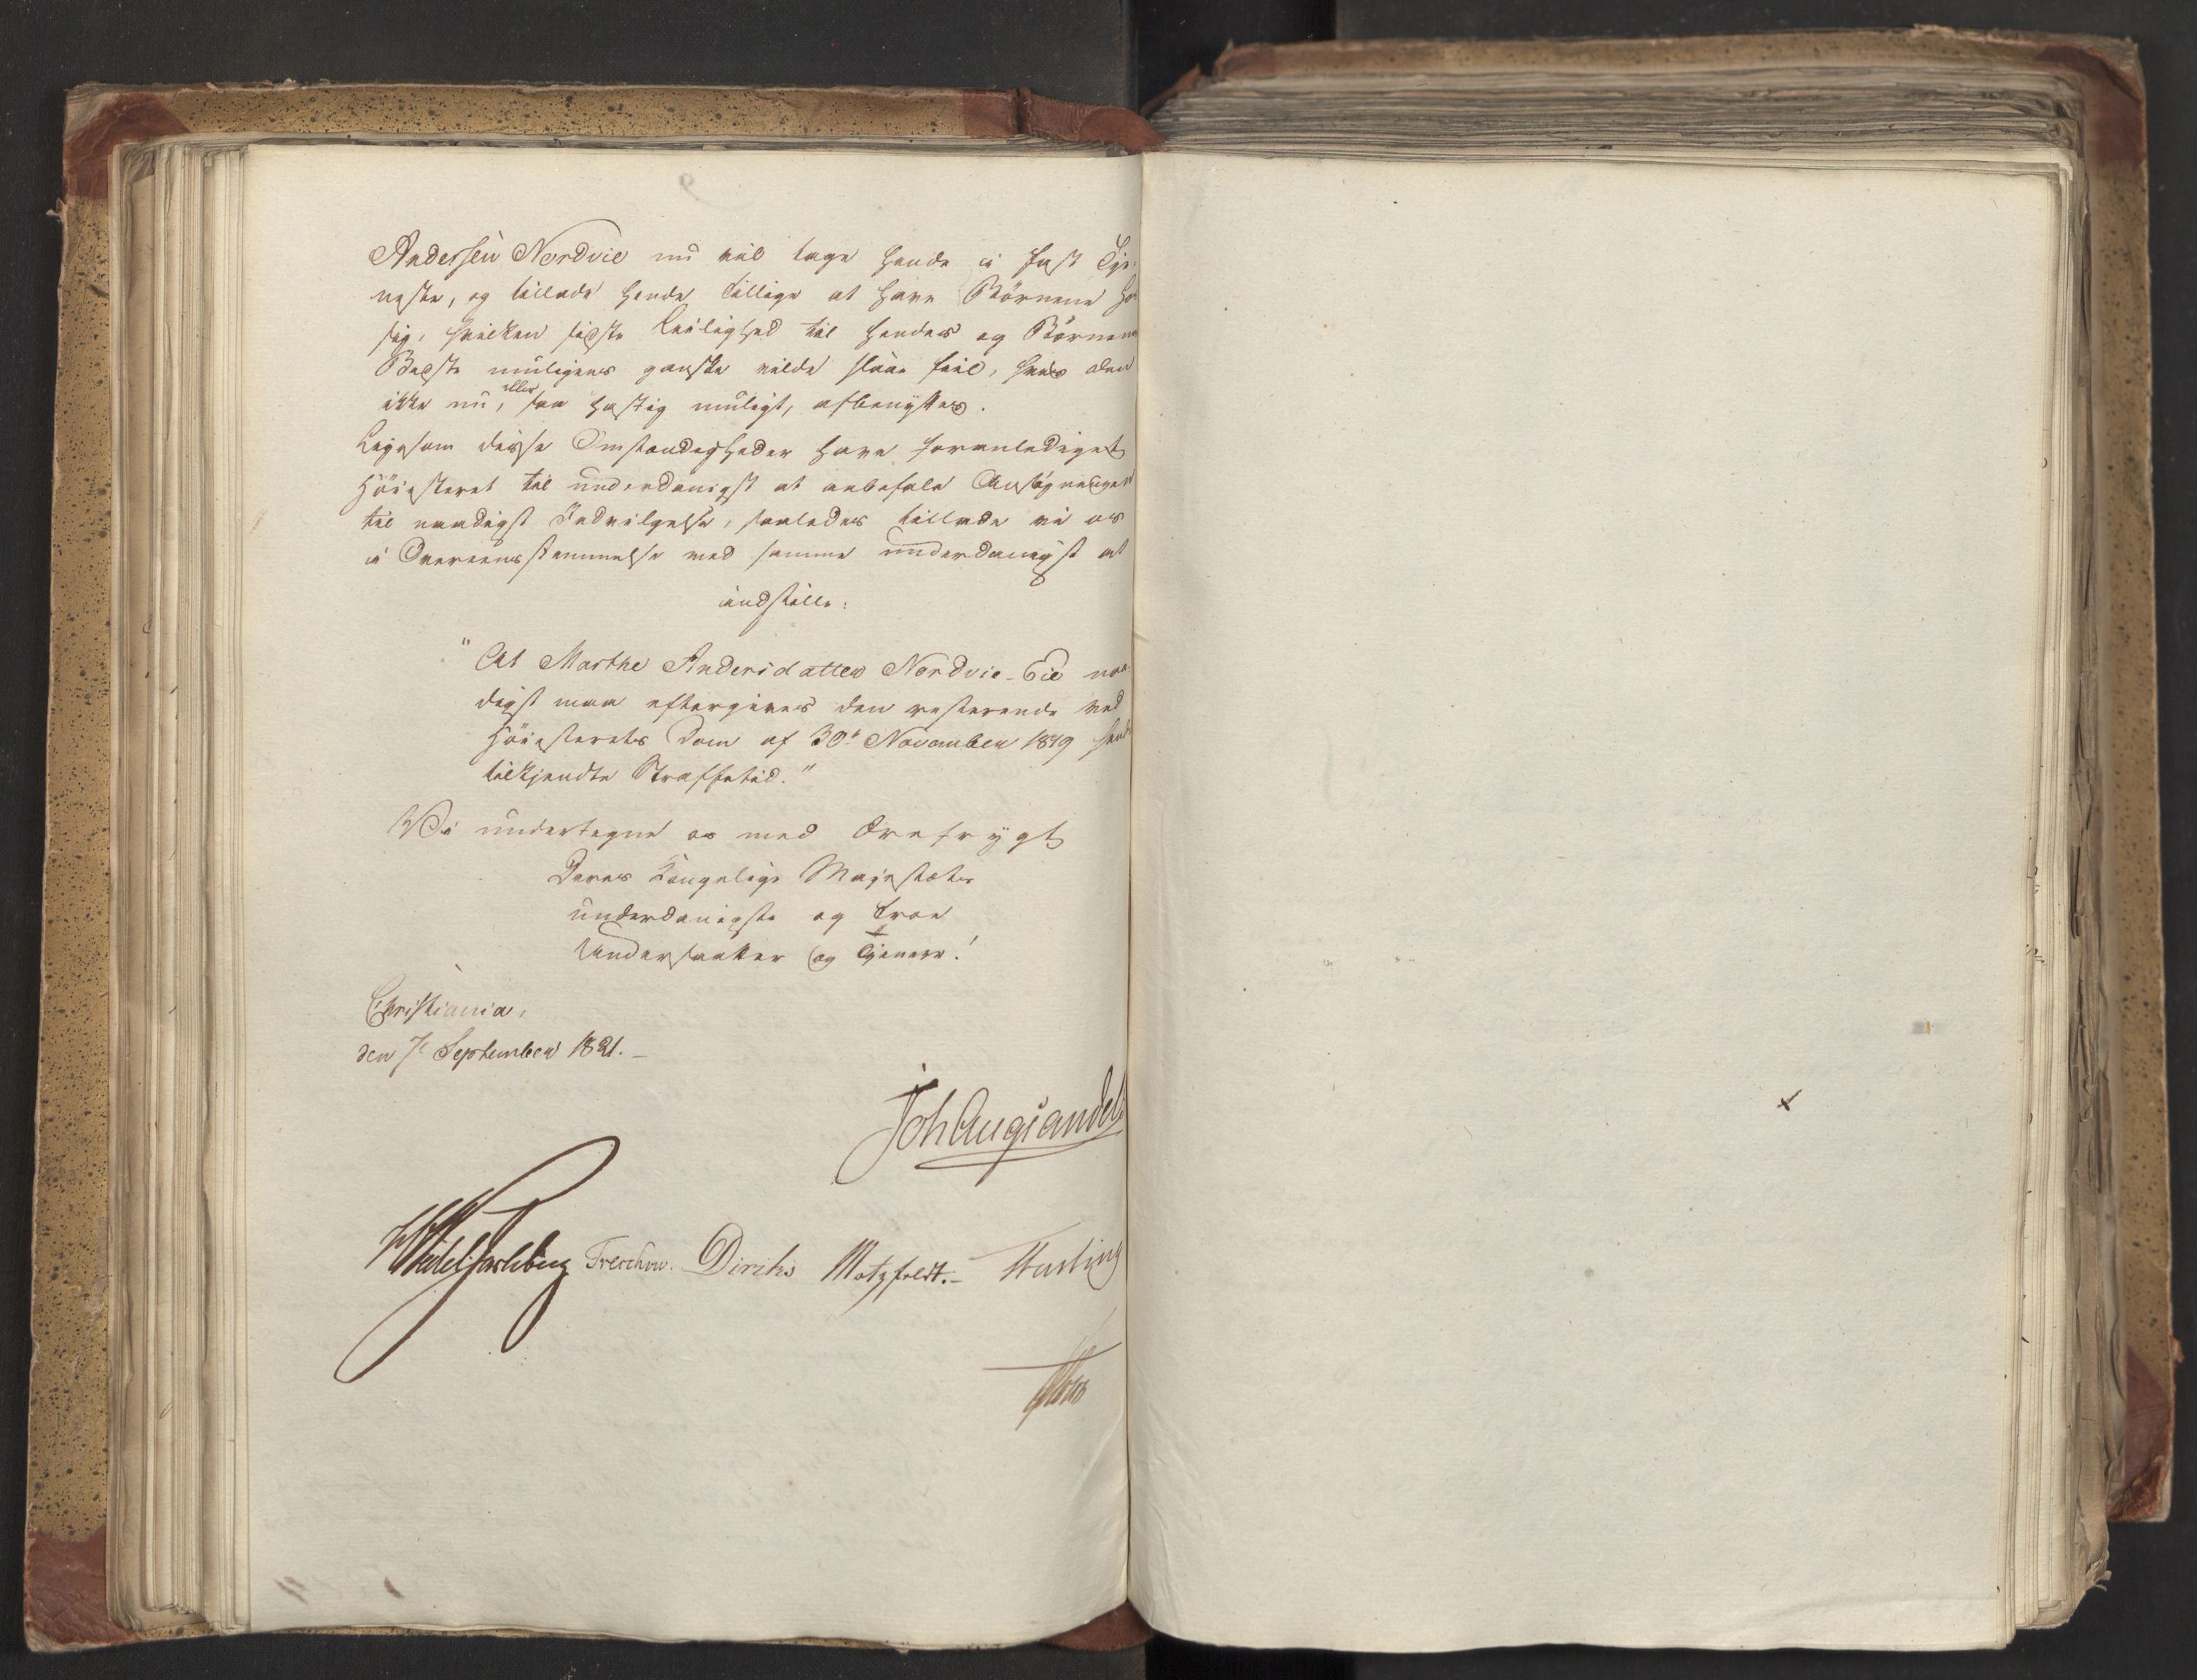 Andersen Nordvie nu vil tage hende i fast Tje-
neste, og tillade hende tillige at have Börnene ho
sig, hvilken sidste Leilighed til hendes og Börnenes
Bedste muligens ganske vilde slaae feil, hvis den
ikke nu, eller saa hastig muligt, afbenyttes.
Ligesom disse Omstændigheder have foranlediget
Höiesteret til underdanigst at anbefale Ansögningen
til naadigst Indvilgelse, saaledes tillade vi os
i Overeensstemmelse med samme underdanigst at
indstille:
"At Marthe Andersdatter Nordvie-Eie naa-
digst maa eftergives den resterende ved
Höiesterets Dom af 30te November 1819 hende
tilkjendte Straffetid."
Vi undertegne os med Ærefrygt
Deres Kongelige Majestæts
underdanigste og troe
Undersaatter og Tjenere!
Christiania,
den 7de September 1821.-
Joh Aug Sandels
Wedel Jarlsberg Treschow. Diriks Motzfeldt.-